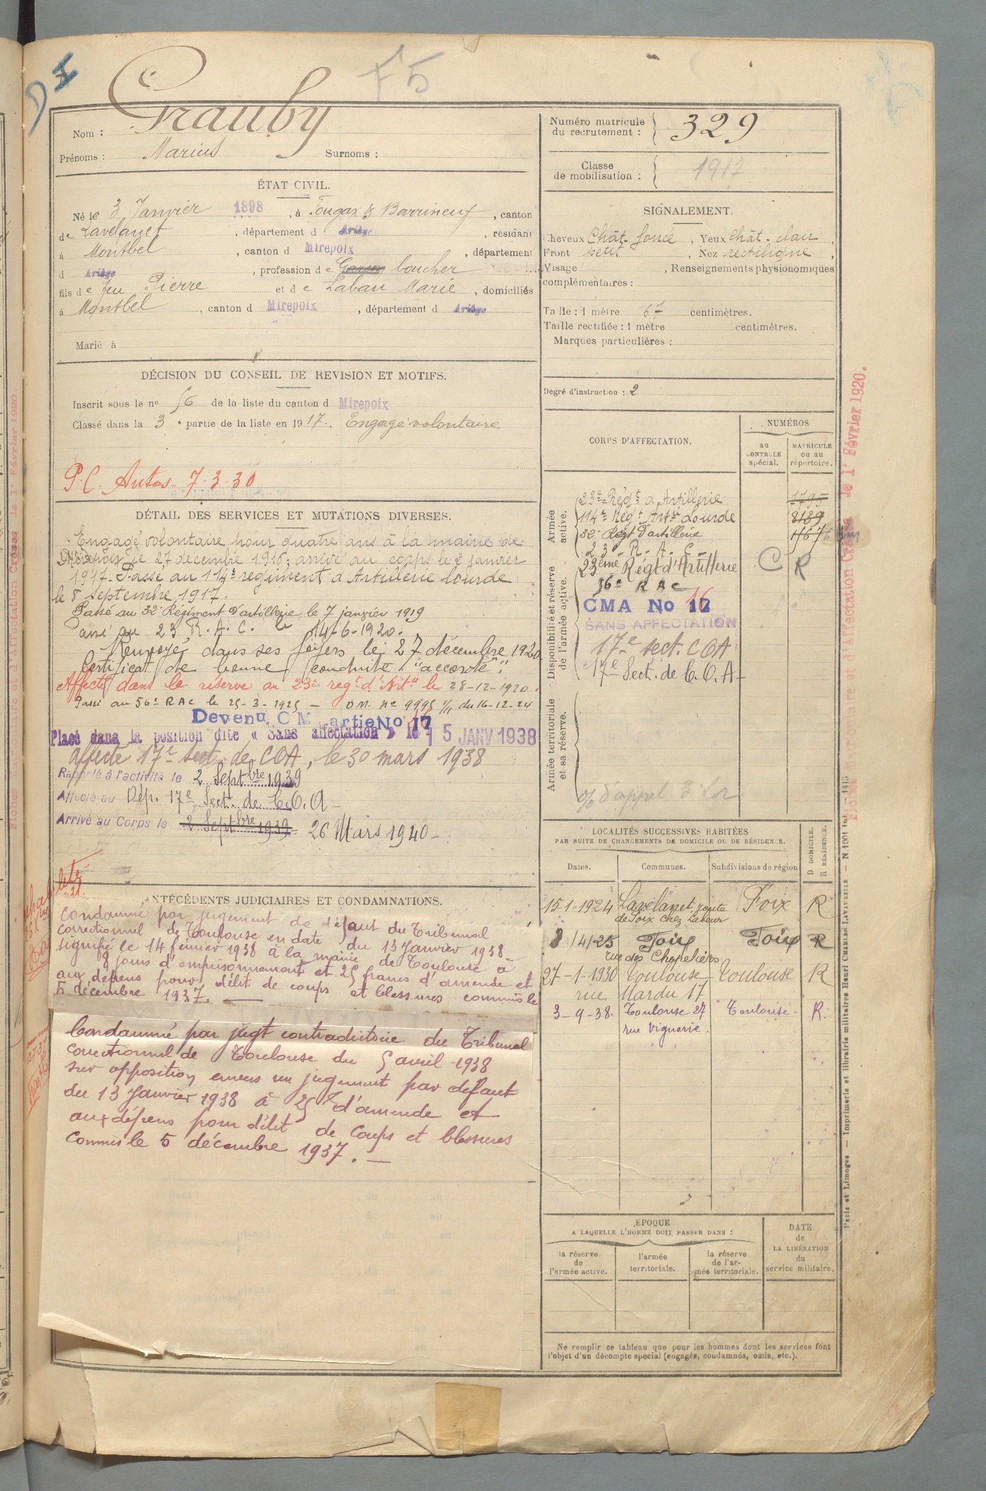 F5
Nom : Grauby
Prénoms : Marius Surnoms :
ÉTAT CIVIL.
Né le 3 Janvier 1898, à Fougax & Barrineuf, canton
de Lavelanet, département d Ariège, résidant
à Montbel, canton d Mirepoix, département
d Ariège, profession de boucher
fils de feu Pierre et de Laban Marie, domiciliés
à Montbel, canton d Mirepoix, département d Ariège
Marié à
DÉCISION DU CONSEIL DE REVISION ET MOTIFS.
Inscrit sous le no 56 de la liste du canton d Mirepoix
Classé dans la 3 e partie de la liste en 1917. Engagé volontaire
P.C. Autos. 7.3.30
DÉTAIL DES SERVICES ET MUTATIONS DIVERSES.
Engagé volontaire pour quatre ans à la mairie de
le 27 décembre 1916; arrivé au corps le 2 janvier
1917. Passé au 114e régiment d'Artillerie lourde
le 8 Septembre 1917.
Passé au 32e Régiment d'artillerie le 7 janvier 1919
Passé au 23 R.A.C. le 14-6-1920.
Renvoyé dans ses foyers le 27 décembre 1920
Certificat de bonne conduite "accordé".
Affecté dans la réserve au 23e régt d'Art. le 28-12-1920.
Passé au 56e RAC le 25-3-1925 — D.M. No 9995 1/4 du 16-12-24
Devenu C M artie No 17
Placé dans la position dite « Sans affectation » le 15 JANV 1938
affecté 17e sect. de COA, le 30 mars 1938
Rappelé à l'activité le 2 Septbre 1939
Affecté au Dép. 17e Sect. de C.O.A —
Arrivé au Corps le 2 Septbre 1939 26 Mars 1940 —
ANTÉCÉDENTS JUDICIAIRES ET CONDAMNATIONS.
Condamné par jugement de défaut du Tribunal
correctionnel de Toulouse en date du 13 Janvier 1938 —
signifié le 14 février 1938 à la mairie de Toulouse à
8 jours d'emprisonnement et 25 francs d'amende et
aux dépens pour délit de coups et blessures commis le
5 décembre 1937. —
Condamné par jugt contradictoire du Tribunal
correctionnel de Toulouse du 5 avril 1938
sur opposition envers un jugement par défaut
du 13 Janvier 1938 à 25 f d'amende et
aux dépens pour délit de Coups et blessures
Commis le 5 décembre 1937. —
Numéro matricule du recrutement : 329
Classe de mobilisation : 1917
SIGNALEMENT.
Cheveux Chât. foncé, Yeux chât. clair,
Front petit, Nez rectiligne,
Visage , Renseignements physionomiques
complémentaires :
Taille : 1 mètre 67 centimètres.
Taille rectifiée : 1 mètre centimètres.
Marques particulières :
Degré d'instruction : 2
CORPS D'AFFECTATION.
NUMÉROS
AU CONTROLE spécial.
MATRICULE ou au répertoire.
Armée active.
23e Régt d'Artillerie
114e Régt Arte Lourde 8189
32e Régt d'artillerie
23e R.A.C.
Disponibilité et réserve de l'armée active.
23ème Régt d'Artillerie C R
56e RAC
CMA No 17 16
SANS AFFECTATION
17e sect. COA
17e Sect. de C.O.A —
Armée territoriale et sa réserve.
LOCALITÉS SUCCESSIVES HABITÉES
PAR SUITE DE CHANGEMENTS DE DOMICILE OU DE RÉSIDENCE.
D DOMICILE.
R RÉSIDENCE.
Dates. Communes. Subdivisions de région
15-1-1924 Lavelanet, route Foix R
de Foix chez
8/4/25 Foix Foix R
rue des Chapeliers
27-1-1930 Toulouse Toulouse R
rue 17
3-9-38. Toulouse 27 Toulouse. R.
rue Viguerie.
ÉPOQUE
A LAQUELLE L'HOMME DOIT PASSER DANS :
la réserve de l'armée active.
l'armée territoriale.
la réserve de l'armée territoriale.
DATE de LA LIBÉRATION du service militaire.
Ne remplir ce tableau que pour les hommes dont les services font
l'objet d'un décompte spécial (engagés, condamnés, omis, etc.).
Paris et Limoges. — Imprimerie et librairie militaires Henri CHARLES-LAVAUZELLE.